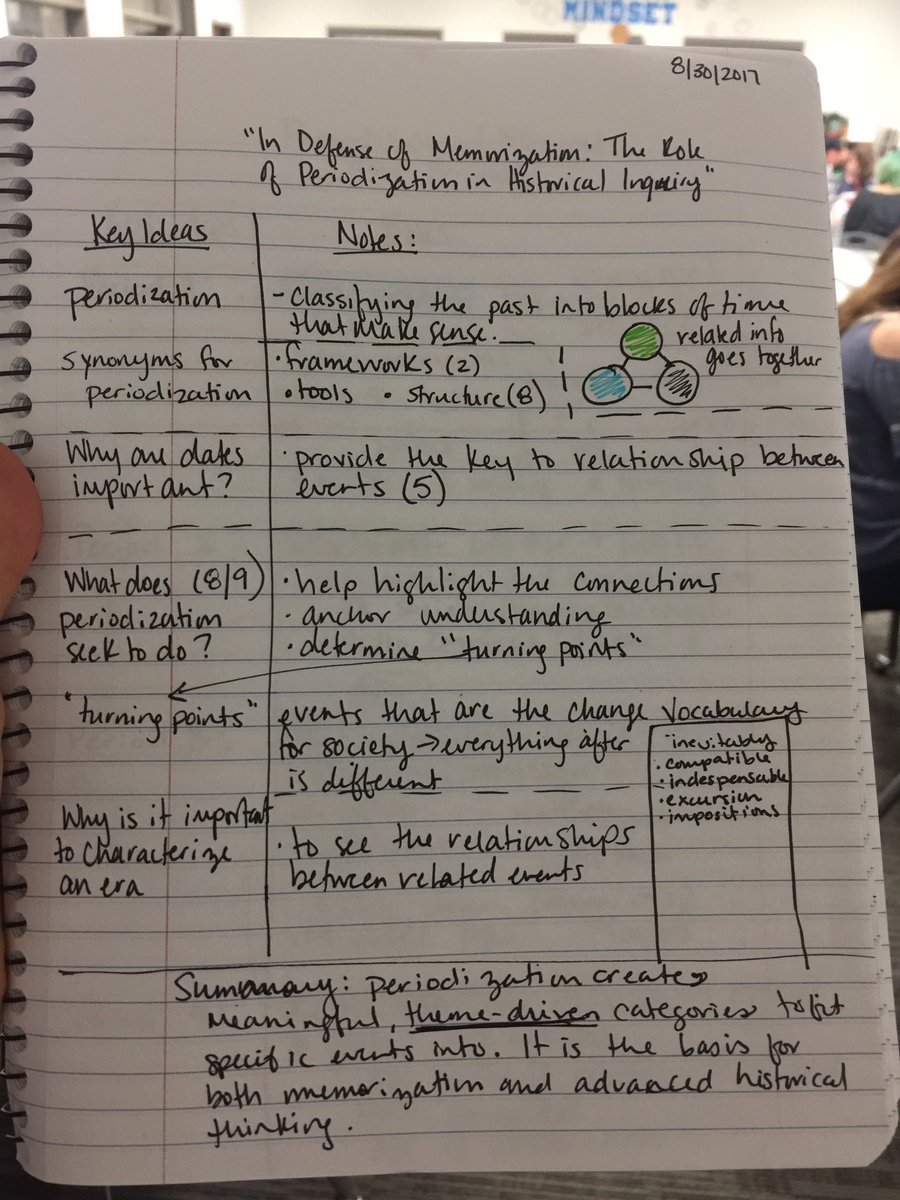 MINDSET
8/30/2017
"In Defense of Memorization: The Role
of Periodization in Historical Inquiry"
Key Ideas
Notes:
periodization
- Classifying the past into blocks of time
that make sense.
related info
goes together
synonyms for
periodization
• frameworks (2)
• tools • structure (8)
Why are dates
important?
• provide the key to relationship between
events (5)
What does (8/9)
periodization
seek to do?
• help highlight the connections
• anchor understanding
• determine "turning points"
"turning points"
events that are the change
for society → everything after
is different
Vocabulary
• inevitably
• compatible
• indespensable
• excursion
• impositions
Why is it important
to characterize
an era
• to see the relationships
between related events
Summary: periodization creates
meaningful, theme-driven categories to fit
specific events into. It is the basis for
both memorization and advanced historical
thinking.